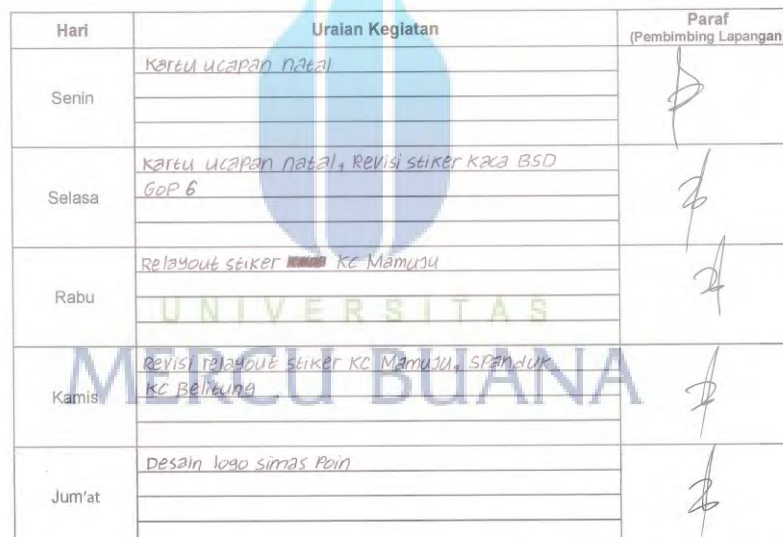 Hari
Uraian Kegiatan
Paraf
(Pembimbing Lapangan
Senin
Kartu ucapan natal
Selasa
Kartu ucapan natal, Revisi stiker kaca BSD
GOP 6
Rabu
Relayout stiker KC Mamuju
UNIVERSITAS
MERCU BUANA
Kamis
Revisi relayout stiker KC Mamuju, Spanduk
KC Belitung
Jum'at
Desain logo simas Poin